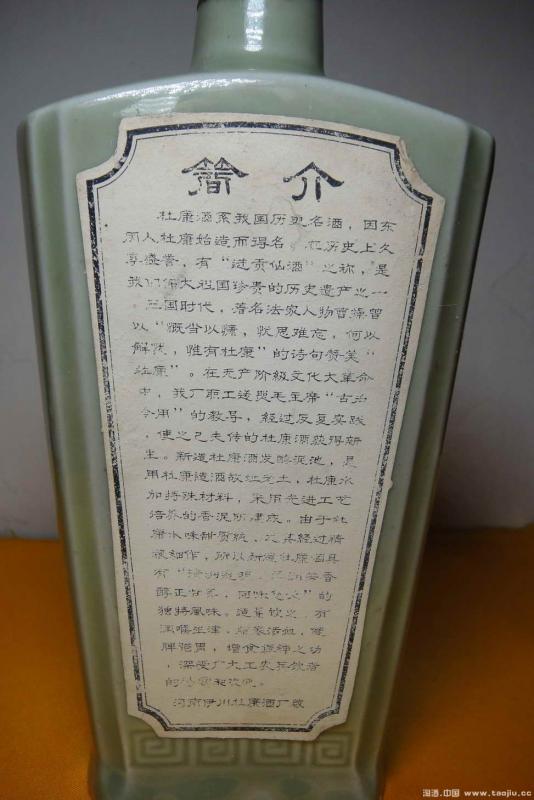 简介
杜康酒系我国历史名酒，因东
周人杜康始造而得名。在历史上久
享盛誉，有“进贡仙酒”之称，是
我们伟大祖国珍贵的历史遗产之一
。三国时代，著名法家人物曹操曾
以“慨当以慷，忧思难忘，何以
解忧，惟有杜康”的诗句赞美“
杜康”。在无产阶级文化大革命
中，我厂职工遵照毛主席“古为
今用”的教导，经过反复实践
，使之已失传的杜康酒获得新
生。新造杜康酒发酵泥池，是
用杜康造酒故址之土，杜康水
加特殊材料，采用先进工艺
培养的香泥所建成。由于杜
康水味甜质纯，又其经过精
粮细作，所以新造杜康酒具
有“
醇正甘美，回味悠久”的
独特風味。适量饮之，有
活血，健
脾范胃，增食提神之功
，深受广大工农兵饮者
的
河南伊川杜康酒厂敬
淘酒.中国 www.taojiu.cc